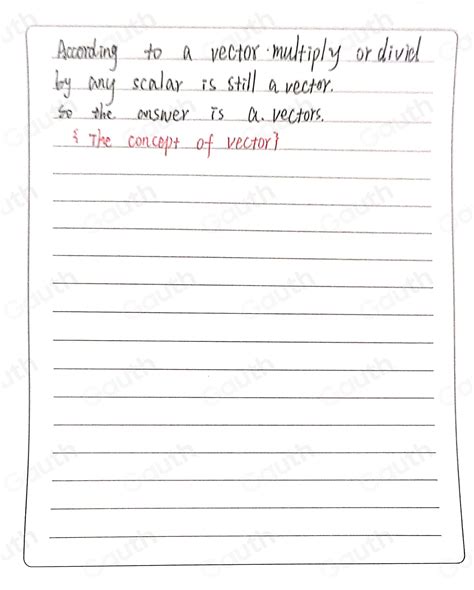 According to a vector multiply or divid
by any scalar is still a vector.
so the answer is a. vectors.
{ The concept of vector}